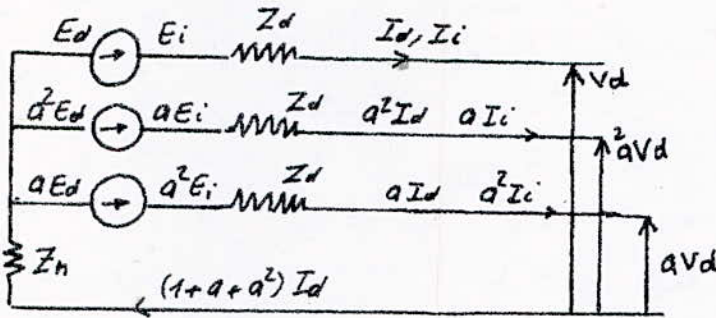 Ed Ei Zd Id, Ii
Vd
a²Ed aEi Zd a²Id aIi
²aVd
aEd a²Ei Zd aId a²Ii
aVd
Zn
(1+a+a²) Id